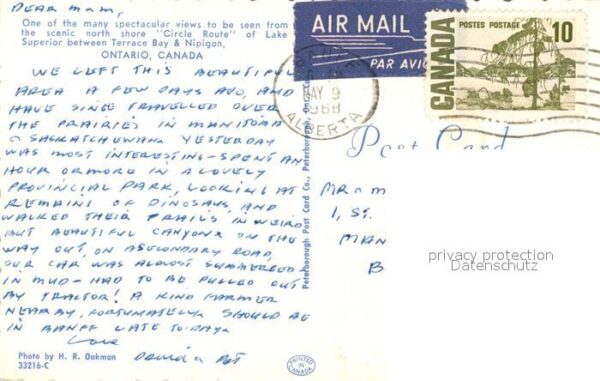 DEAR MAM,
One of the many spectacular views to be seen from
the scenic north shore "Circle Route" of Lake
Superior between Terrace Bay & Nipigon,
ONTARIO, CANADA
WE LEFT THIS BEAUTIFUL
AREA A FEW DAYS AGO, AND
HAVE SINCE TRAVELLED OVER
THE PRAIRIES IN MANITOBA
& SASKATCHEWAN. YESTERDAY
WAS MOST INTERESTING - SPENT AN
HOUR OR MORE IN A LOVELY
PROVINCIAL PARK, LOOKING AT
REMAINS OF DINOSAUS, AND
WALKED THEIR TRAILS IN WEIRD
BUT BEAUTIFUL CANYONX ON THE
WAY OUT, ON A SECONDARY ROAD,
OUR CAR WAS ALMOST SUBMERGED
IN MUD - HAD TO BE PULLED OUT
BY TRACTOR! A KIND FARMER
NEARBY, FORTUNATELY. SHOULD BE
IN BANFF LATE TO-DAY.
Love
David & Pat
Photo by H. R. Oakman
33216-C
PRINTED IN CANADA
Peterborough Post Card Co., Peterborough, Ontario
AIR MAIL
PAR AVION
MAY 9
1968
ALBERTA
POSTES POSTAGE
10
CANADA
Post Card
MR & M
1, ST.
MAN
B
privacy protection
Datenschutz